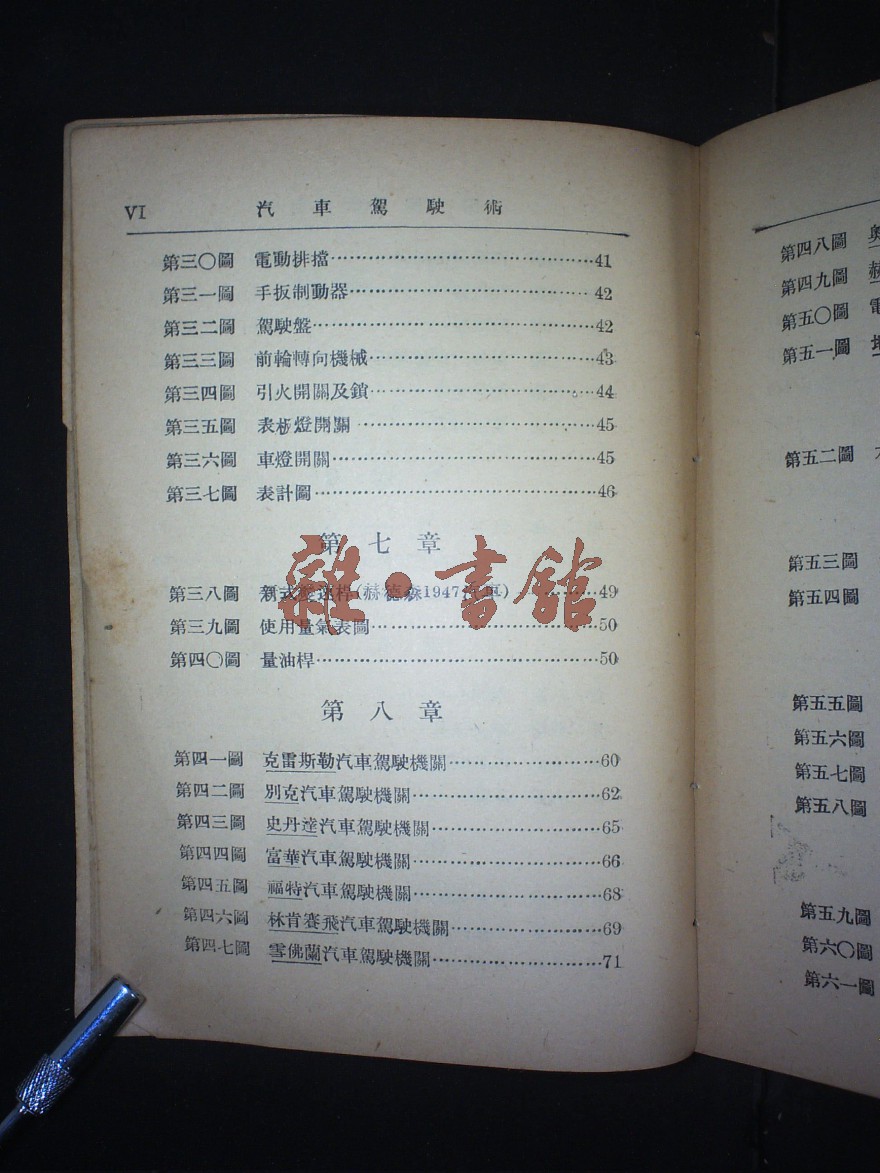 VI 汽車駕駛術
第三〇圖 電動排擋……41
第三一圖 手扳制動器……42
第三二圖 駕駛盤……42
第三三圖 前輪轉向機械……43
第三四圖 引火開關及鎖……44
第三五圖 表板燈開關……45
第三六圖 車燈開關……45
第三七圖 表計圖……46
第七章
第三八圖 新式變速桿(赫德森1947汽車)……49
第三九圖 使用量氣表圖……50
第四〇圖 量油桿……50
雜·書館
第八章
第四一圖 克雷斯勒汽車駕駛機關……60
第四二圖 別克汽車駕駛機關……62
第四三圖 史丹達汽車駕駛機關……65
第四四圖 富華汽車駕駛機關……66
第四五圖 福特汽車駕駛機關……68
第四六圖 林肯賽飛汽車駕駛機關……69
第四七圖 雪佛蘭汽車駕駛機關……71
第四八圖 奧
第四九圖 赫
第五〇圖 電
第五一圖
第五二圖
第五三圖
第五四圖
第五五圖
第五六圖
第五七圖
第五八圖
第五九圖
第六〇圖
第六一圖